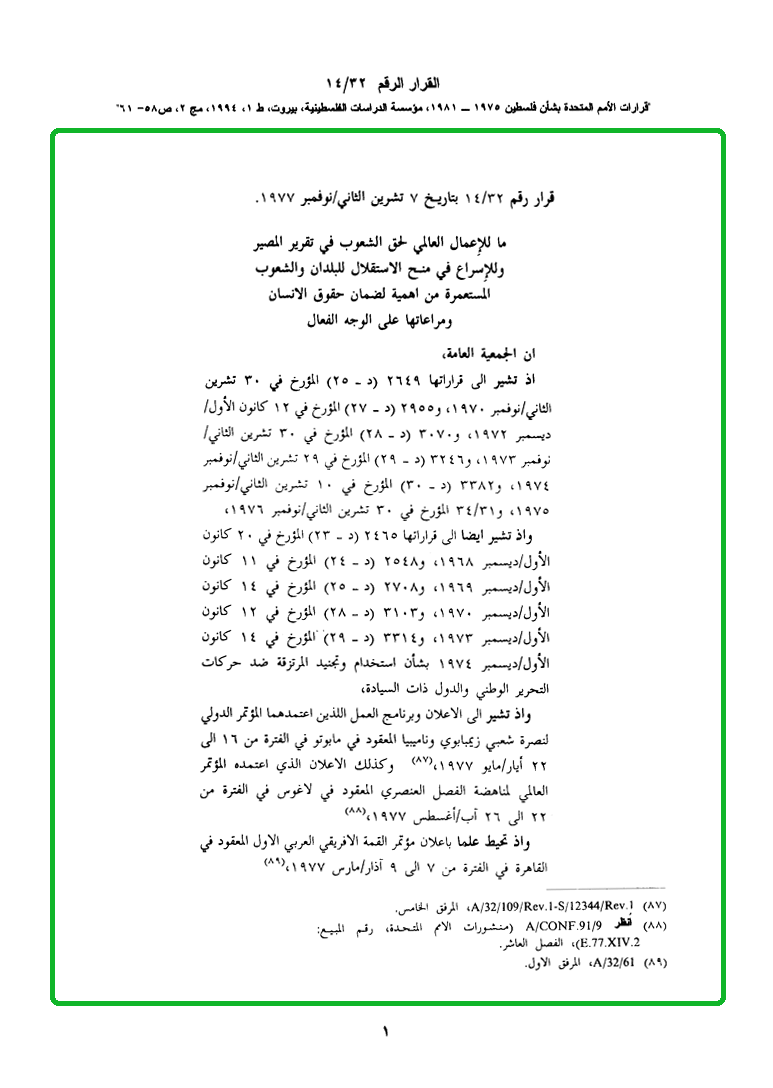 القرار الرقم ١٤/٣٢
"قرارات الأمم المتحدة بشأن فلسطين ١٩٧٥ ــ ١٩٨١، مؤسسة الدراسات الفلسطينية، بيروت، ط ١، ١٩٩٤، مج ٢، ص٥٨- ٦١"
قرار رقم ١٤/٣٢ بتاريخ ٧ تشرين الثاني/نوفمبر ١٩٧٧.
ما للإعمال العالمي لحق الشعوب في تقرير المصير
وللإسراع في منح الاستقلال للبلدان والشعوب
المستعمرة من اهمية لضمان حقوق الانسان
ومراعاتها على الوجه الفعال
ان الجمعية العامة،
اذ تشير الى قراراتها ٢٦٤٩ (د ـ ٢٥) المؤرخ في ٣٠ تشرين
الثاني/نوفمبر ١٩٧٠، و٢٩٥٥ (د ـ ٢٧) المؤرخ في ١٢ كانون الأول/
ديسمبر ١٩٧٢، و٣٠٧٠ (د ـ ٢٨) المؤرخ في ٣٠ تشرين الثاني/
نوفمبر ١٩٧٣، و٣٢٤٦ (د ـ ٢٩) المؤرخ في ٢٩ تشرين الثاني/نوفمبر
١٩٧٤، و٣٣٨٢ (د ـ ٣٠) المؤرخ في ١٠ تشرين الثاني/نوفمبر
١٩٧٥، و٣٤/٣١ المؤرخ في ٣٠ تشرين الثاني/نوفمبر ١٩٧٦،
واذ تشير ايضا الى قراراتها ٢٤٦٥ (د ـ ٢٣) المؤرخ في ٢٠ كانون
الأول/ديسمبر ١٩٦٨، و٢٥٤٨ (د ـ ٢٤) المؤرخ في ١١ كانون
الأول/ديسمبر ١٩٦٩، و٢٧٠٨ (د ـ ٢٥) المؤرخ في ١٤ كانون
الأول/ديسمبر ١٩٧٠، و٣١٠٣ (د ـ ٢٨) المؤرخ في ١٢ كانون
الأول/ديسمبر ١٩٧٣، و٣٣١٤ (د ـ ٢٩) المؤرخ في ١٤ كانون
الأول/ديسمبر ١٩٧٤ بشأن استخدام وتجنيد المرتزقة ضد حركات
التحرير الوطني والدول ذات السيادة،
واذ تشير الى الاعلان وبرنامج العمل اللذين اعتمدهما المؤتمر الدولي
لنصرة شعبي زيمبابوي وناميبيا المعقود في مابوتو في الفترة من ١٦ الى
٢٢ أيار/مايو ١٩٧٧،(٨٧) وكذلك الاعلان الذي اعتمده المؤتمر
العالمي لمناهضة الفصل العنصري المعقود في لاغوس في الفترة من
٢٢ الى ٢٦ آب/أغسطس ١٩٧٧،(٨٨)
واذ تحيط علما باعلان مؤتمر القمة الافريقي العربي الاول المعقود في
القاهرة في الفترة من ٧ الى ٩ آذار/مارس ١٩٧٧،(٨٩)
(٨٧) A/32/109/Rev.1-S/12344/Rev.1، المرفق الخامس.
(٨٨) أنظر A/CONF.91/9 (منشورات الامم المتحدة، رقم المبيع:
E.77.XIV.2)، الفصل العاشر.
(٨٩) A/32/61، المرفق الاول.
١